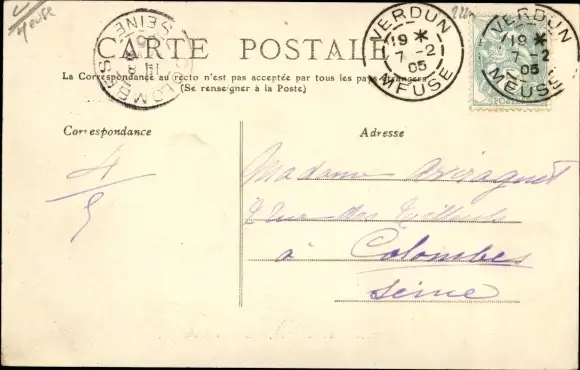 Meuse
COLOMBES
SEINE
VERDUN
19 *
7 - 2
05
MEUSE
VERDUN
19 *
7 - 2
05
MEUSE
CARTE POSTALE
La Correspondance au recto n'est pas acceptée par tous les pays étrangers
(Se renseigner à la Poste)
Correspondance
Adresse
4/5
Madame
Rue des Tilleuls
à Colombes
Seine